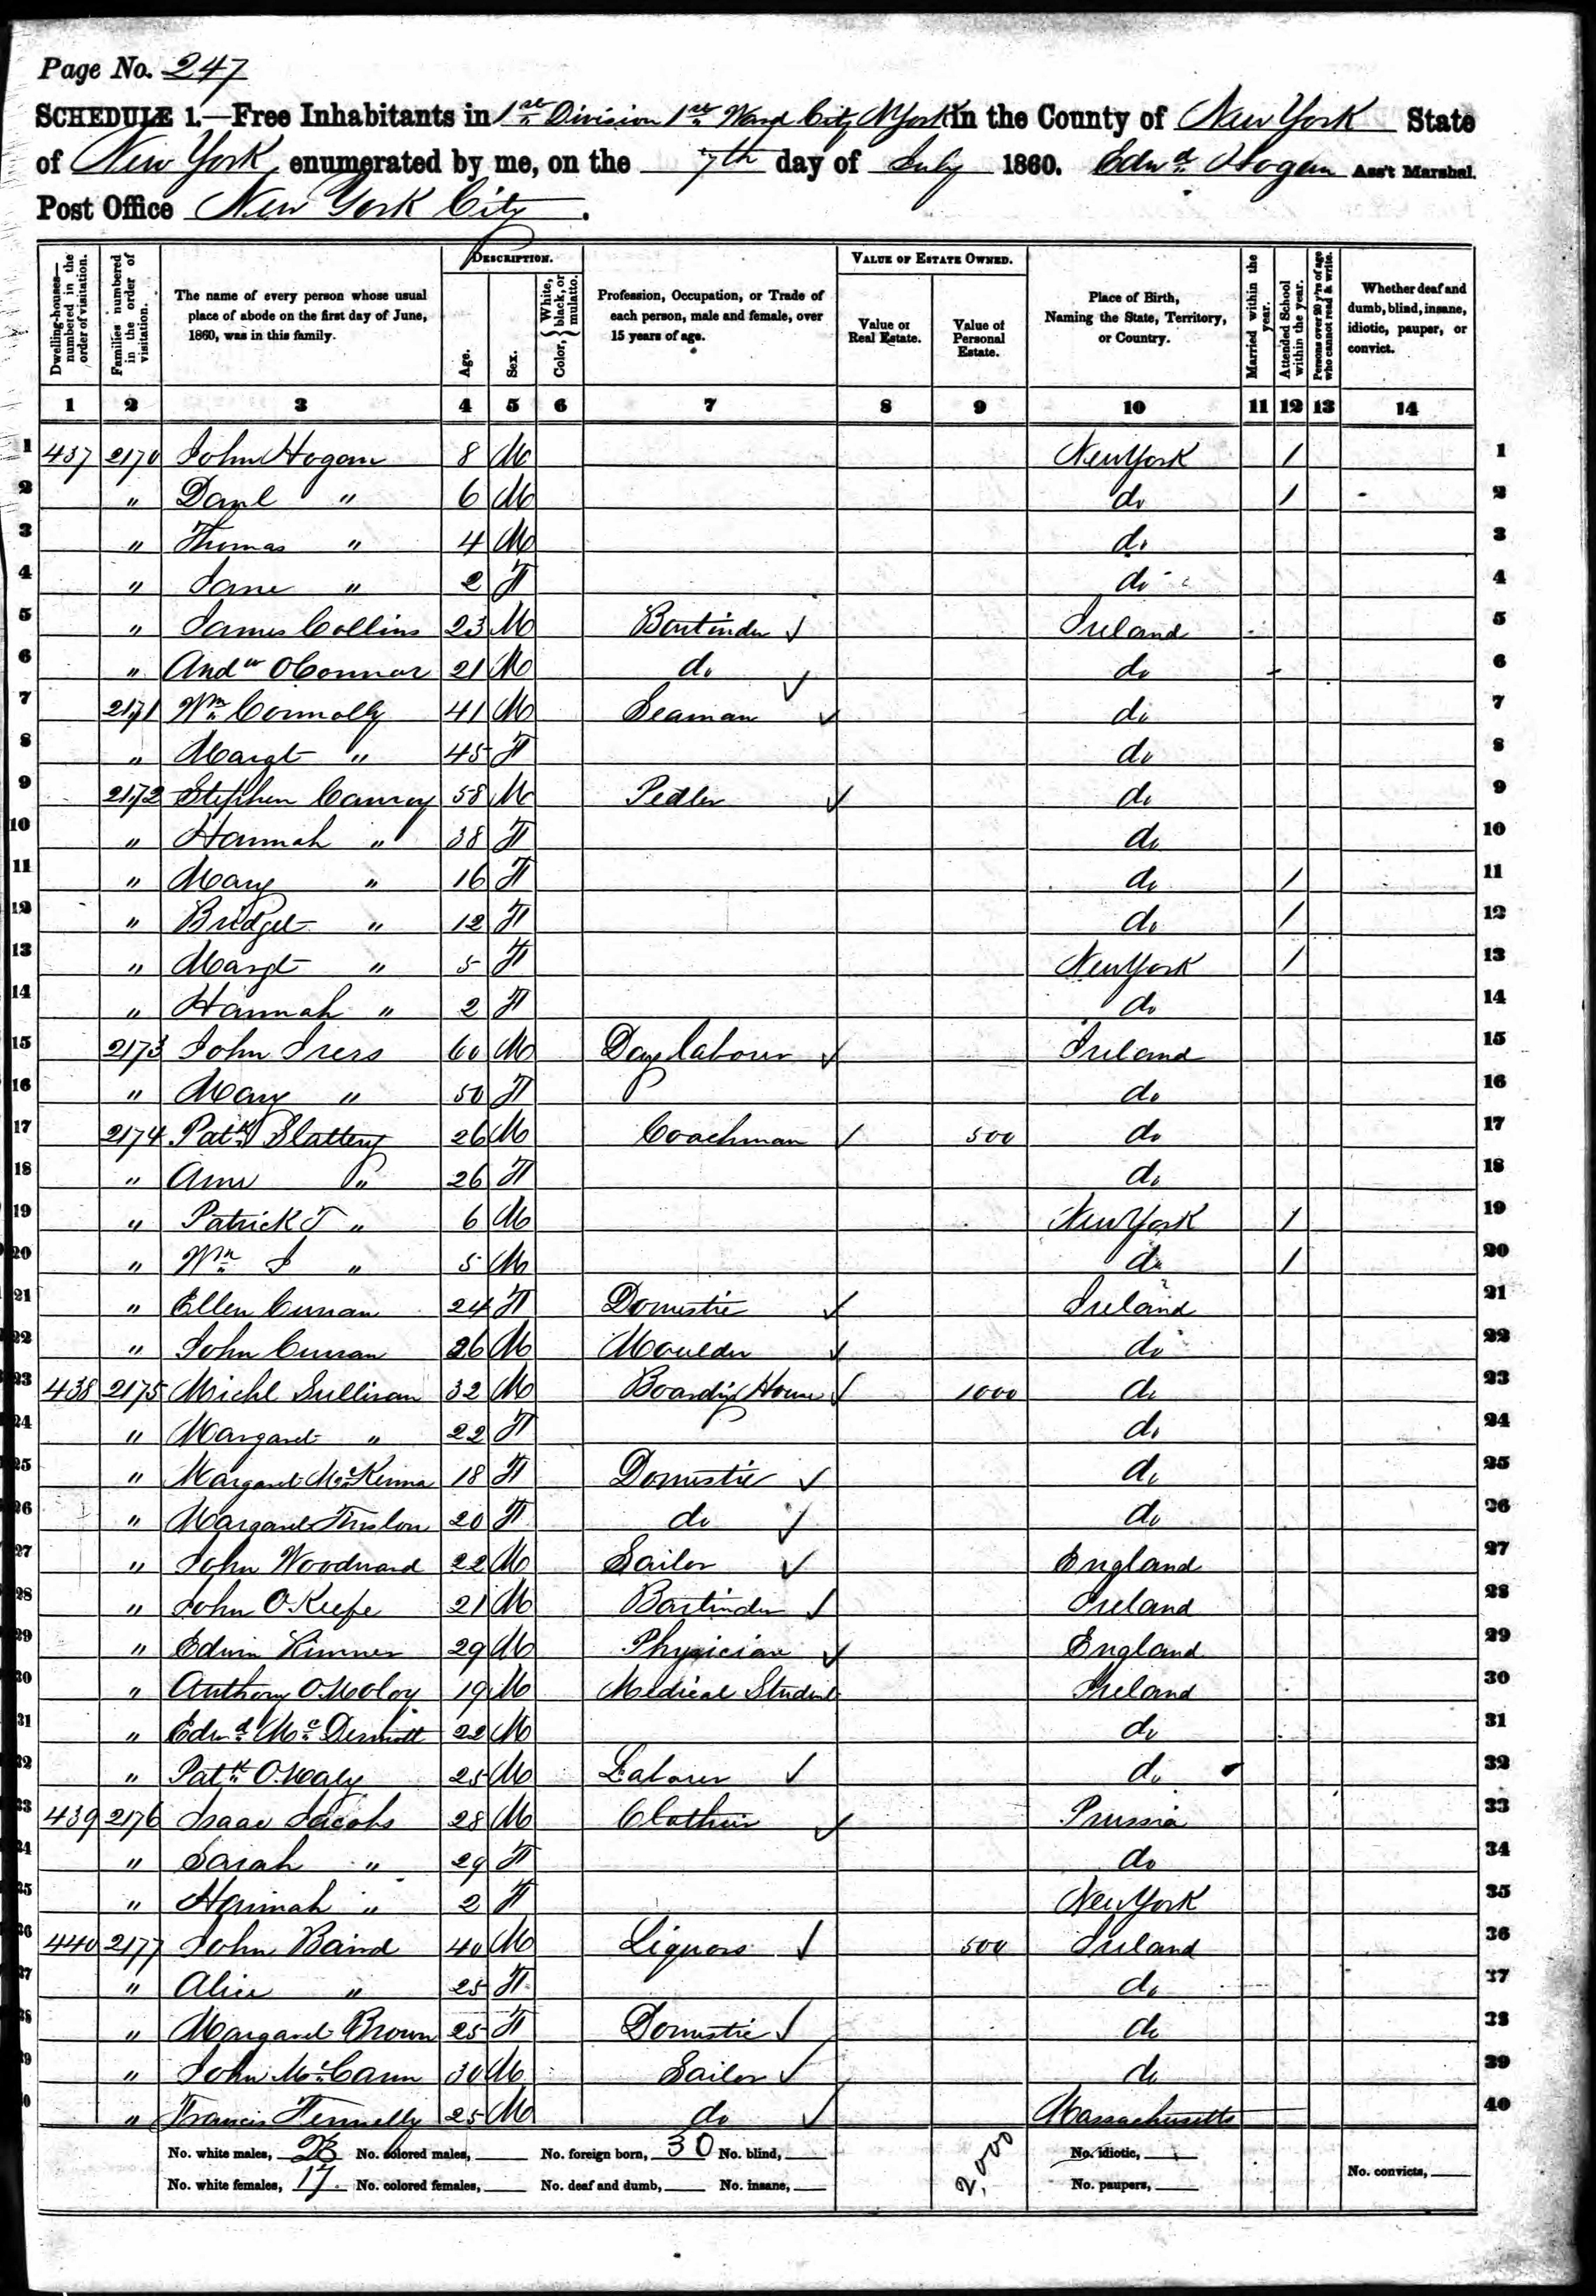 Page No. 247
SCHEDULE 1.—Free Inhabitants in 1st Division 1st Ward City NYork in the County of New York State
of New York enumerated by me, on the 7th day of July 1860. Edwd Hogan Ass't Marshal.
Post Office New York City.
Dwelling-houses—numbered in the order of visitation. Families numbered in the order of visitation. The name of every person whose usual place of abode on the first day of June, 1860, was in this family. DESCRIPTION. Age. Sex. Color, {White, black, or mulatto. Profession, Occupation, or Trade of each person, male and female, over 15 years of age. VALUE OF ESTATE OWNED. Value of Real Estate. Value of Personal Estate. Place of Birth, Naming the State, Territory, or Country. Married within the year. Attended School within the year. Persons over 20 y'rs of age who cannot read & write. Whether deaf and dumb, blind, insane, idiotic, pauper, or convict.
1 2 3 4 5 6 7 8 9 10 11 12 13 14
1 437 2170 John Hogan 8 M New York / 1
2 " Danl " 6 M do / 2
3 " Thomas " 4 M do 3
4 " Jane " 2 F do 4
5 " James Collins 23 M Bartinder Ireland 5
6 " Andw OConnor 21 M do do 6
7 2171 Wm Connolly 41 M Seaman do 7
8 " Margt " 45 F do 8
9 2172 Stephen Canroy 58 M Pedler do 9
10 " Hannah " 38 F do 10
11 " Mary " 16 F do / 11
12 " Bridget " 12 F do / 12
13 " Margt " 5 F New York / 13
14 " Hannah " 2 F do 14
15 2173 John 60 M Day labourer Ireland 15
16 " Mary " 50 F do 16
17 2174 Patk Slattery 26 M Coachman 500 do 17
18 " Ann " 26 F do 18
19 " Patrick T " 6 M New York / 19
20 " Wm J " 5 M do / 20
21 " Ellen Curran 24 F Domestic Ireland 21
22 " John Curran 26 M Moulder do 22
23 438 2175 Michl Sullivan 32 M Boarding House 1000 do 23
24 " Margaret " 22 F do 24
25 " Margaret McKenna 18 F Domestic do 25
26 " Margaret 20 F do do 26
27 " John Woodward 22 M Sailor England 27
28 " John O.Keefe 21 M Bartinder Ireland 28
29 " Edwin 29 M Physician England 29
30 " Anthony O.Moloy 19 M Medical Student Ireland 30
31 " Edwd McDermott 22 M do 31
32 " Patk O.Maly 25 M Laborer do 32
33 439 2176 Isaac Jacobs 28 M Clothier Prussia 33
34 " Sarah " 29 F do 34
35 " Hannah " 2 F New York 35
36 440 2177 John Baird 40 M Liquors 500 Ireland 36
37 " Alice " 25 F do 37
38 " Margaret Brown 25 F Domestic do 38
39 " John McCann 30 M Sailor do 39
" Francis Fennelly 25 M do Massachusetts 40
No. white males, 23 No. colored males, No. foreign born, 30 No. blind, 2,000 No. idiotic,
No. white females, 17. No. colored females, No. deaf and dumb, No. insane, No. paupers, No. convicts,